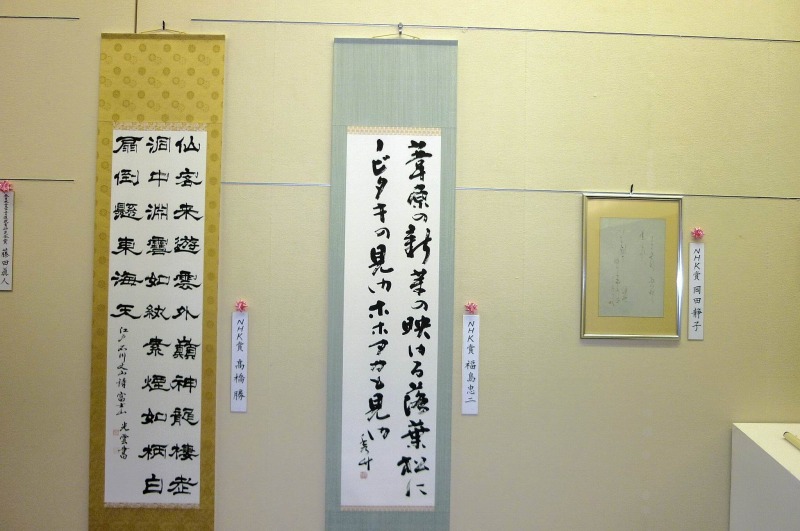 藤田眞人
仙客来遊雲外巓神龍棲老
洞中淵雪如紈素煙如柄白
扇倒懸東海天
江戸石川丈山詩富士山 光雲書
NHK賞 高橋 勝
葦原の新芽の映ゆる落葉松に
ノビタキの見ゆホホアカも見ゆ
NHK賞 福島忠二
NHK賞 岡田靜子